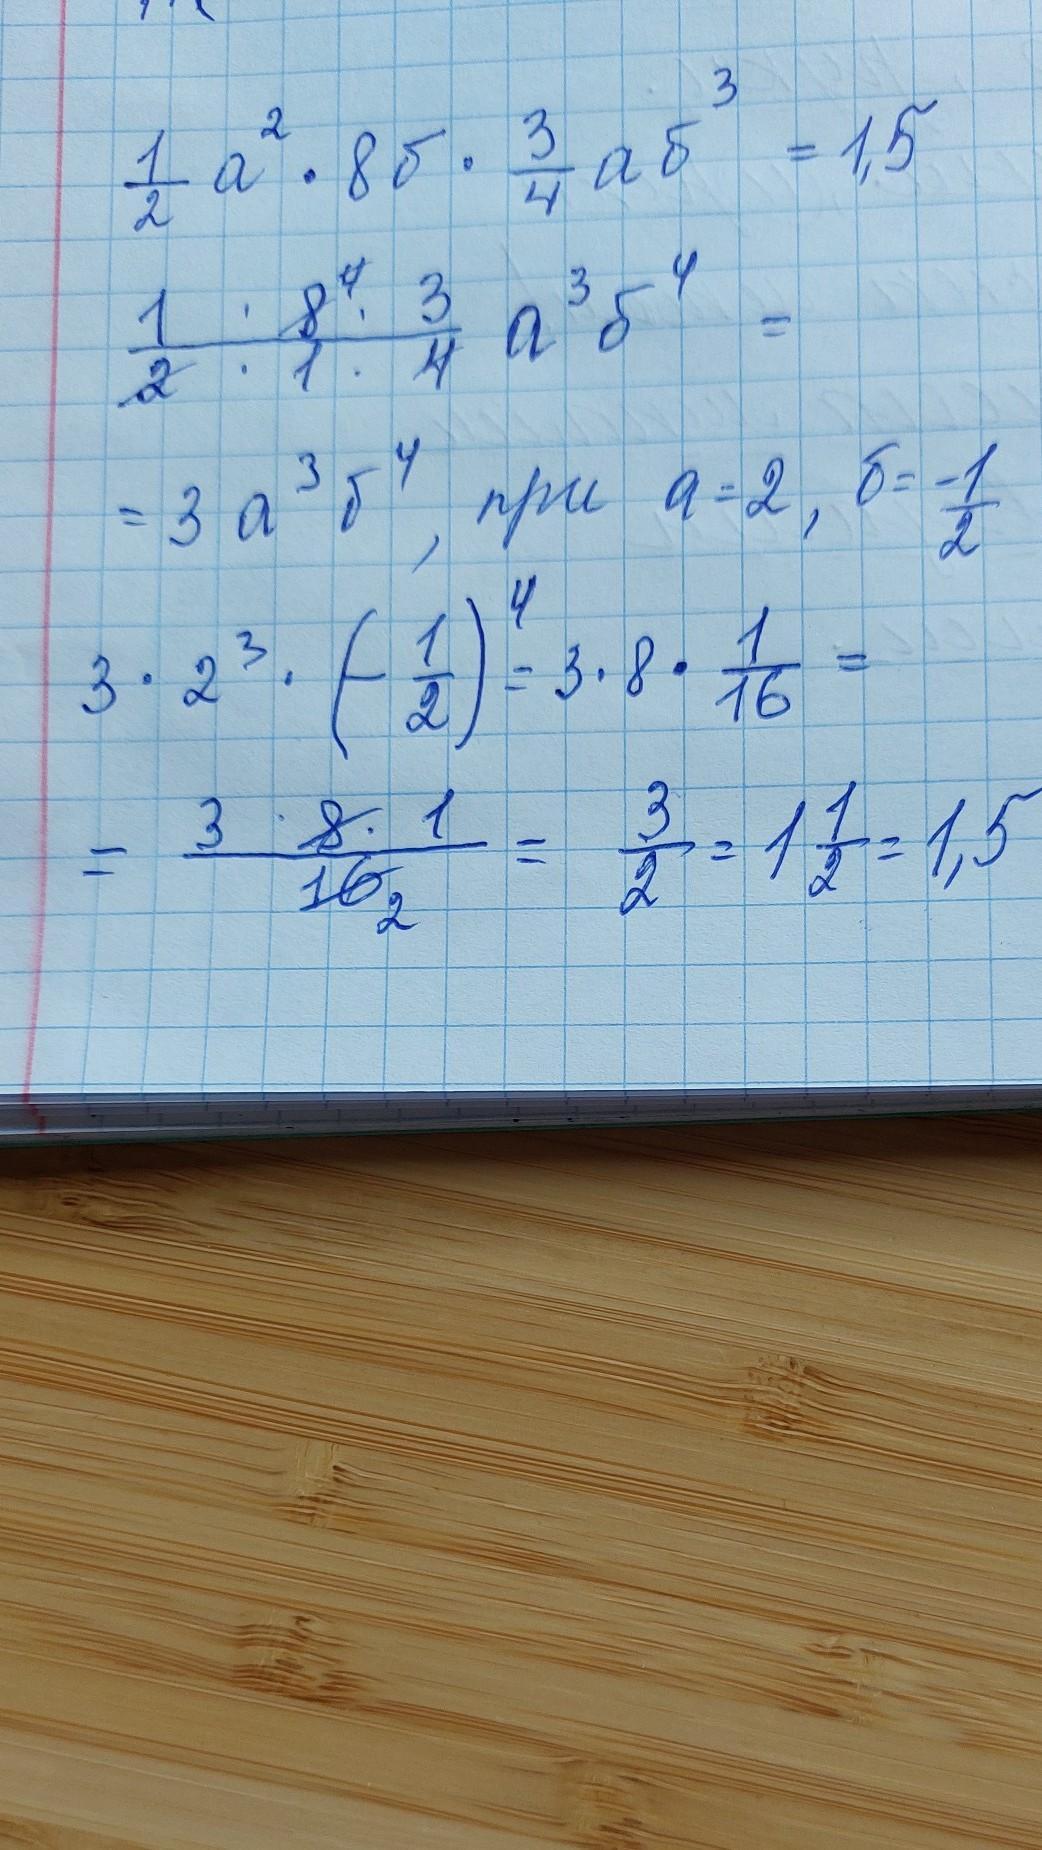 1/2 а² · 8б · 3/4 аб³ = 1,5
1 · 8⁴ · 3 / 2 · 1 · 4 а³б⁴ =
= 3 а³б⁴, при а = 2, б = -1/2
3 · 2³ · (-1/2)⁴ = 3 · 8 · 1/16 =
= 3 · 8 · 1 / 16 2 = 3/2 = 1 1/2 = 1,5